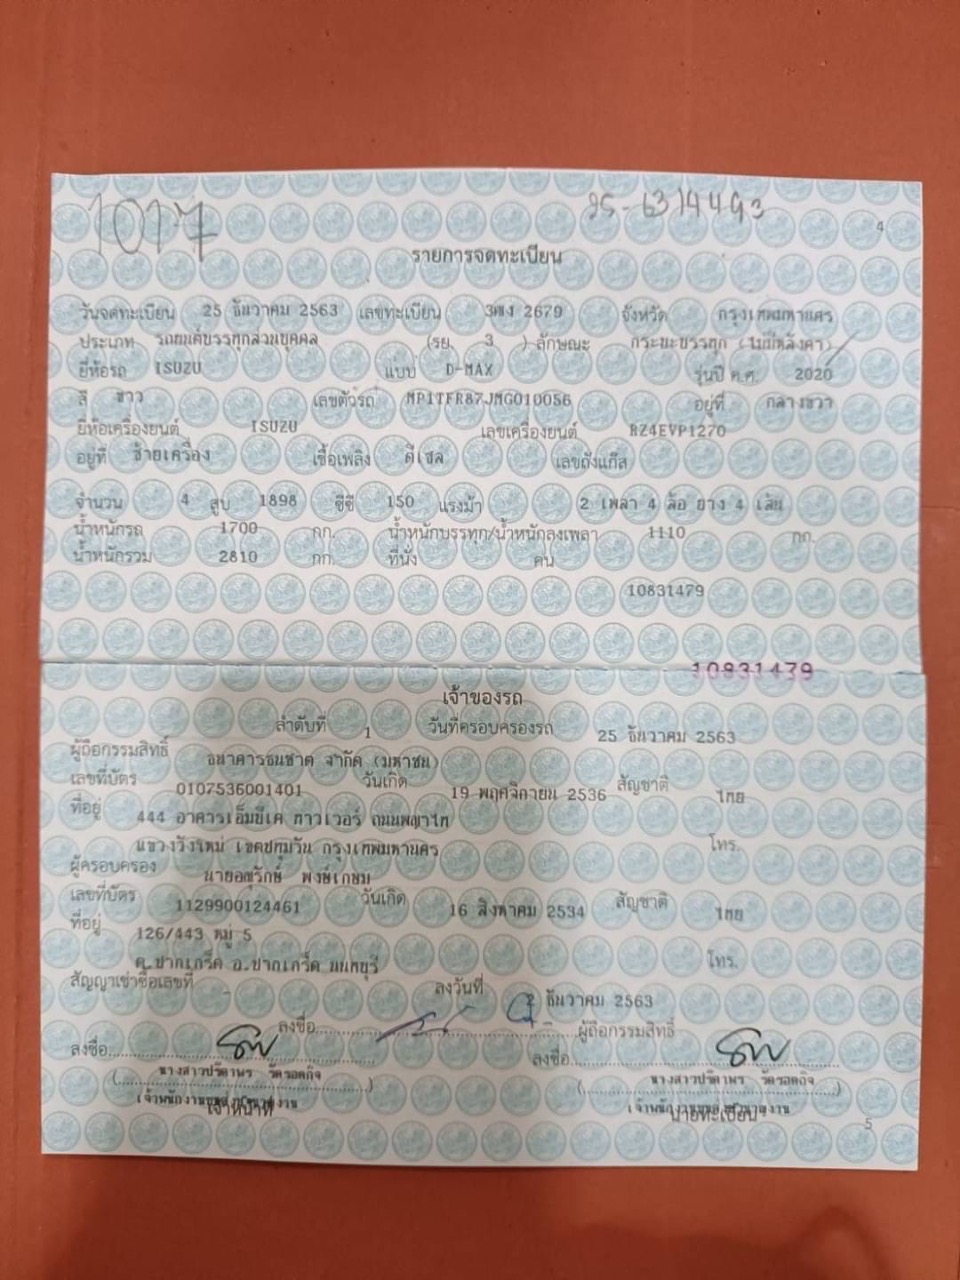 1017
25-6314493
4
รายการจดทะเบียน
วันจดทะเบียน 25 ธันวาคม 2563 เลขทะเบียน 2679 จังหวัด กรุงเทพมหานคร
ประเภท รถยนต์บรรทุกส่วนบุคคล (รย. 3 ) ลักษณะ กระบะบรรทุก (ไม่มีหลังคา)
ยี่ห้อรถ ISUZU แบบ D-MAX รุ่นปี ค.ศ. 2020
สี ขาว เลขตัวรถ MP1TFR87JMG010056 อยู่ที่ กลางขวา
ยี่ห้อเครื่องยนต์ ISUZU เลขเครื่องยนต์ RZ4EVP1270
อยู่ที่ ซ้ายเครื่อง เชื้อเพลิง ดีเซล เลขถังแก๊ส
จำนวน 4 สูบ 1898 ซีซี 150 แรงม้า 2 เพลา 4 ล้อ ยาง 4 เส้น
น้ำหนักรถ 1700 กก. น้ำหนักบรรทุก/น้ำหนักลงเพลา 1110 กก.
น้ำหนักรวม 2810 กก. ที่นั่ง คน
10831479
10831479
เจ้าของรถ
ลำดับที่ 1 วันที่ครอบครองรถ 25 ธันวาคม 2563
ผู้ถือกรรมสิทธิ์ ธนาคารธนชาต จำกัด (มหาชน)
เลขที่บัตร 0107536001401 วันเกิด 19 พฤศจิกายน 2536 สัญชาติ ไทย
ที่อยู่ 444 อาคารเอ็มบีเค ทาวเวอร์ ถนนพญาไท
แขวงวังใหม่ เขตปทุมวัน กรุงเทพมหานคร โทร.
ผู้ครอบครอง นายอนุรักษ์ พงษ์เกษม
เลขที่บัตร 1129900124461 วันเกิด 16 สิงหาคม 2534 สัญชาติ ไทย
ที่อยู่ 126/443 หมู่ 5
ต.ปากเกร็ด อ.ปากเกร็ด นนทบุรี โทร.
สัญญาเช่าซื้อเลขที่ - ลงวันที่ 2 ธันวาคม 2563
ลงชื่อ ผู้ถือกรรมสิทธิ์
ลงชื่อ ลงชื่อ
(นางสาวปริดาพร วัดรอดกิจ) (นางสาวปริดาพร วัดรอดกิจ)
เจ้าหน้าที่ นายทะเบียน
5